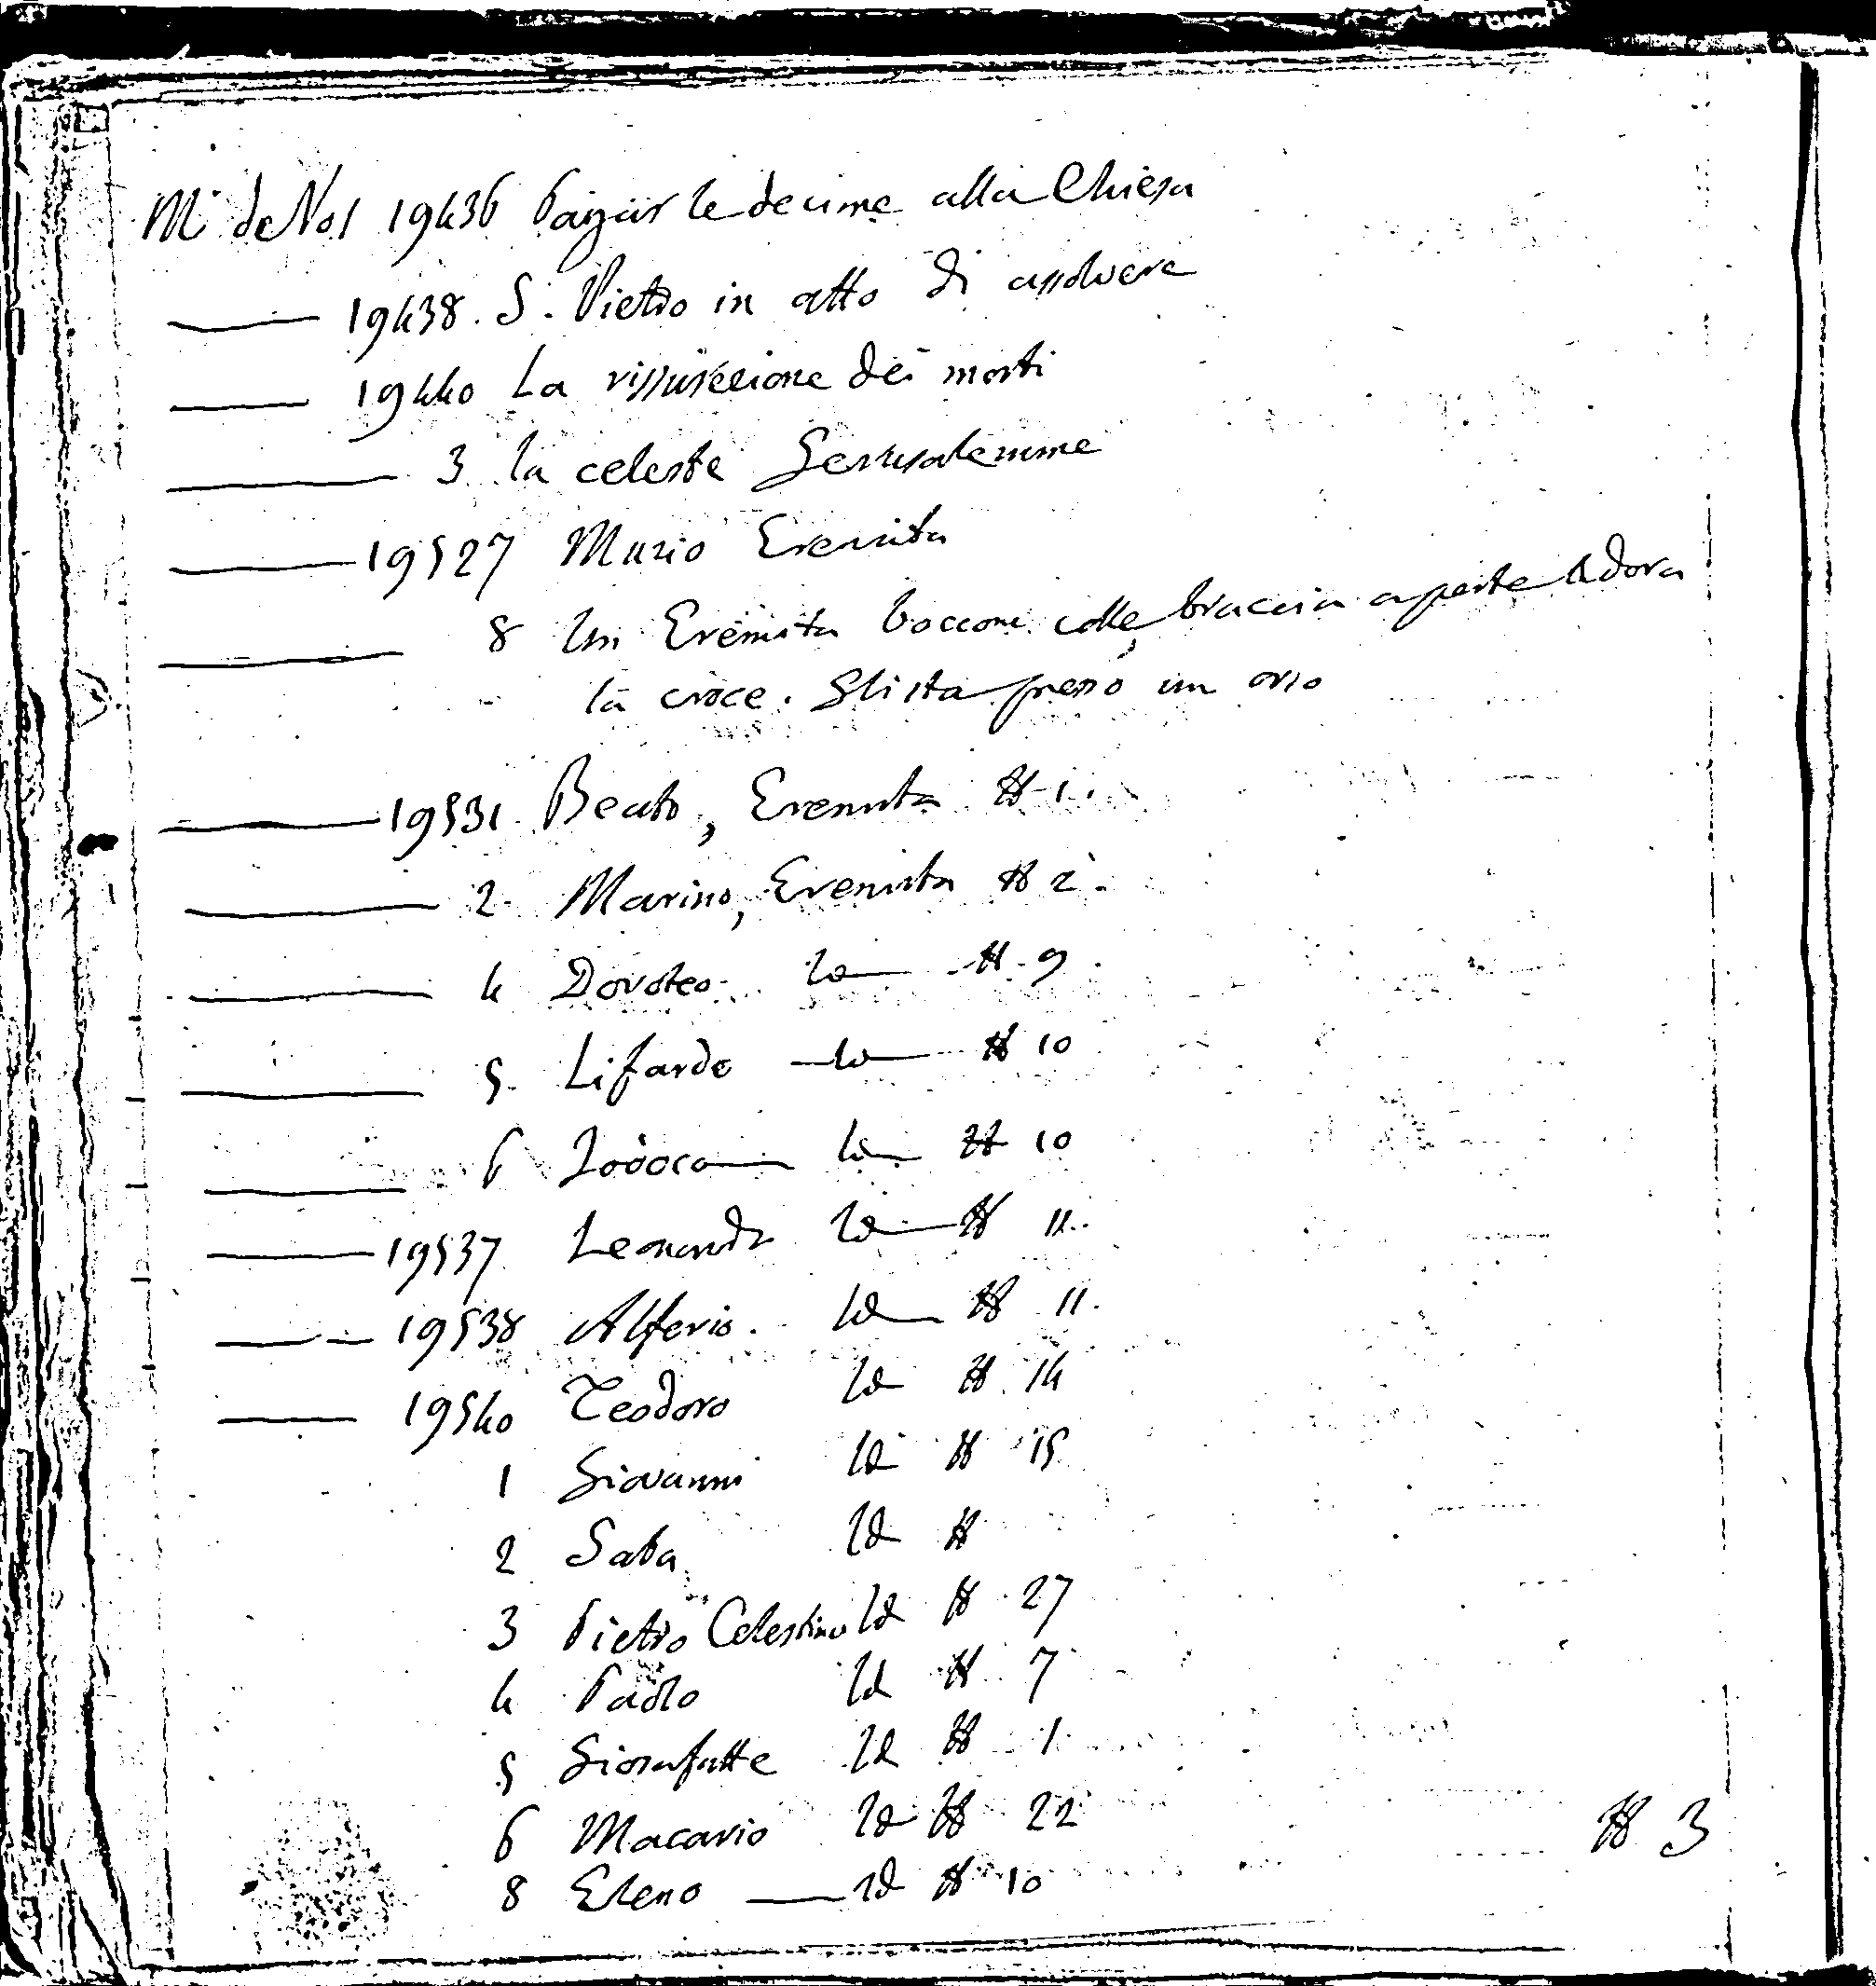 M. de Vos 19436 Pagar le decime alla Chiesa
—— 19438. S. Pietro in atto di assolvere
—— 19440 La rissurezione dei morti
—— 3 la celeste Gerusalemme
—— 19527 Muzio Eremita
—— 8 Un Eremita boccone colle braccia aperte adora
la croce. Gli sta presso un orso
—— 19531 Beato, Eremita # 1.
—— 2 Marino, Eremita # 2.
—— 4 Doroteo Id — # 9.
—— 5. Lifardo — Id — # 10
—— 6 Iodoco — Id — # 10
—— 19537 Leonardo Id — # 11.
—— 19538 Alferio. Id — # 11.
—— 19540 Teodoro Id # 14
1 Giovanni Id # 15
2 Saba Id #
3 Pietro Celestino Id # 27
4 Paolo Id # 7
5 Giosafatte Id # 1
6 Macario Id # 22
8 Eleno — Id # 10
# 3